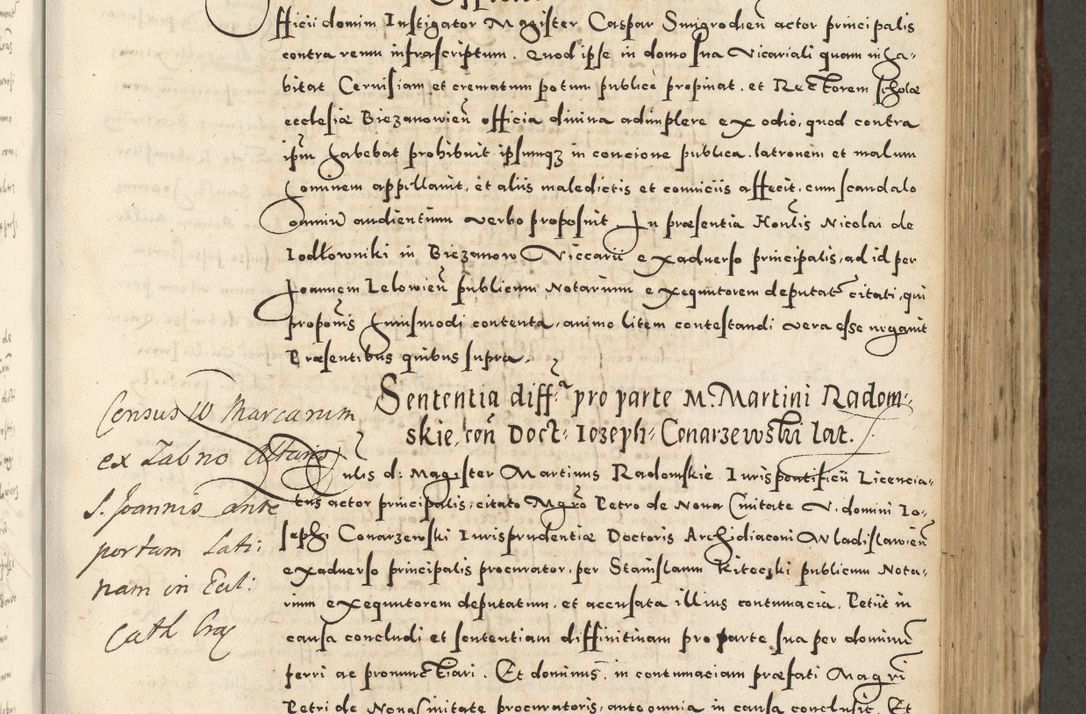 fficii domini Instigator Magister Caspar Smigrodien̄ actor principalis
contra reum infrascriptum. Quod ipse in domo sua Vicariali quam inha-
bitat Ceruisiam et crematum potum publicè propinat. et Rectorem scholæ
ecclesiæ Brezanowien̄ officia diuina adimplere ex odio, quod contra
ip̄m habebat prohibuit ipsumqꝫ in concione publica. latronem et malum
hominem appillauit, et aliis maledictis et conuiciis affecit, cum scandalo
omniū audientium verbo proposuit In præsentia Hon̄lis Nicolai de
Iodłowniki in Brezanow Viccarii ex aduerso principalis, ad id per
Joannem Lelowien̄ publicum Notarium exequutorem deputat̄ citati, qui
propon̄is huiusmodi contenta, animo litem contestandi vera esse negauit
Præsentibus quibus supra.
Sententia diff:ᵃ pro parte M. Martini Radom-
skie, con̄ Doct: Iozeph: Conarzewski lat.
Census W Marcarum
ex Zabno Altaris
S. Joannis ante
portam Lati:
nam in Eccl:
Cath Crac
ulis d: Magister Martinus Radomskie Iuris pontificū Licencia-
tus actor principalis, citato Mgr̄o Petro de Noua Ciuitate V. domini Io-
sephi Conarzewski Iurisprudentiæ Doctoris Archidiaconi Wladislawien̄
ex aduerso principalis procurator, per Stanislaum Kiteczki publicum Nota-
rium exequutorem deputatum, et accusata illius contumacia. Petiit in
causa concludi et sententiam diffinitiuam pro parte sua per dominū
ferri ac pronunctiari. Et dominus, in contumaciam præfati Magr̄i
Petri de Noua Ciuitate procuratoris, ante omnia in causa conclusit. Et